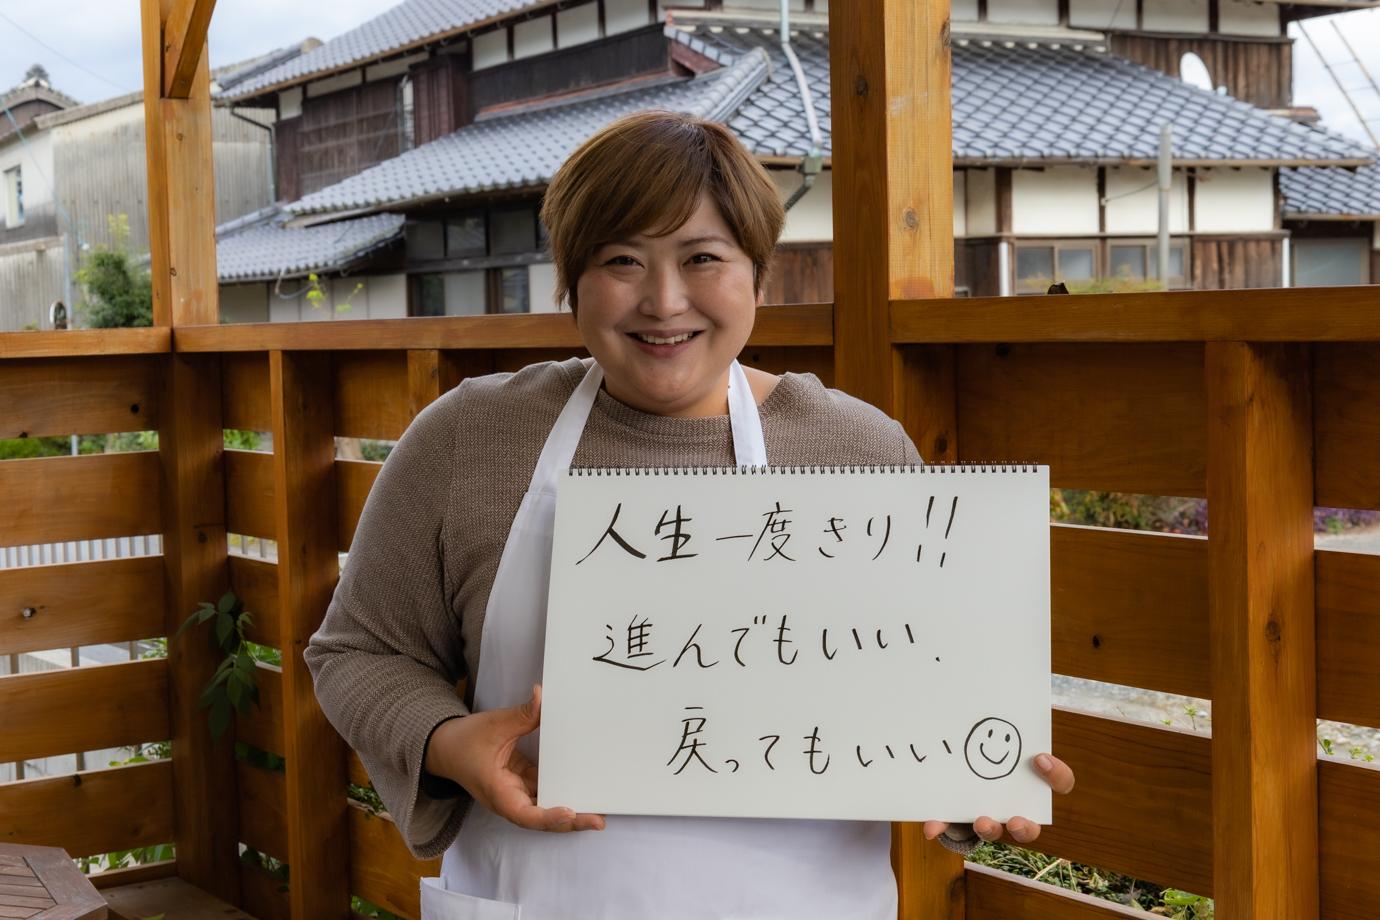 人生一度きり!!
進んでもいい.
戻ってもいい☺